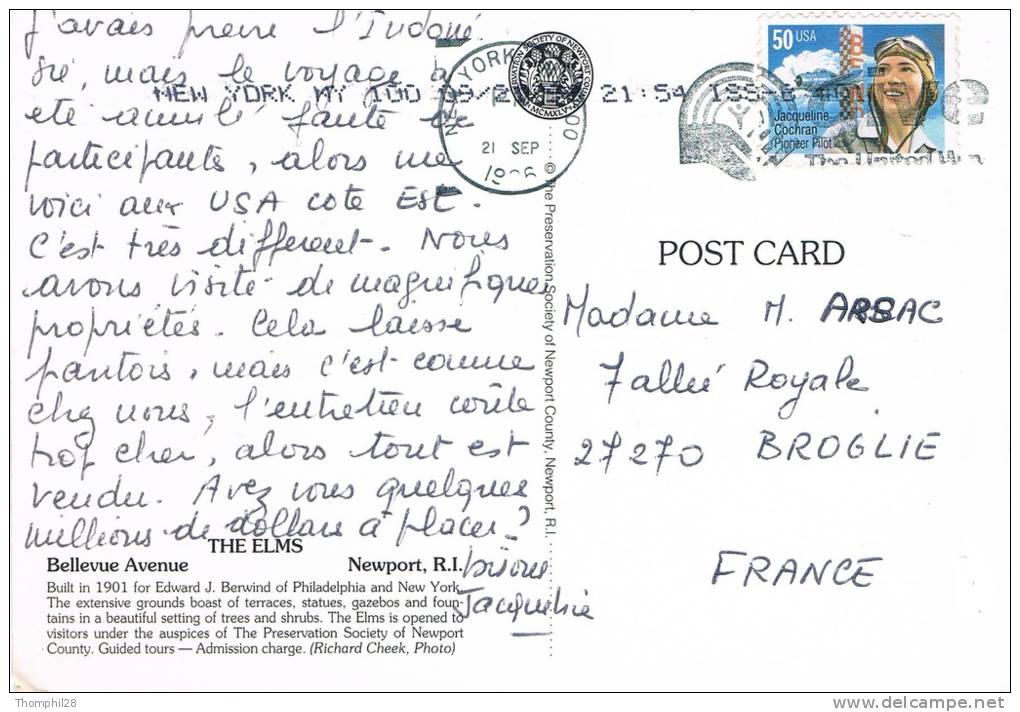 J'avais prévu l'Indoné
sie, mais le voyage a
été annulé faute de
participants, alors me
voici aux USA coté EST.
C'est très différent. Nous
avons visité de magnifiques
propriétés. Cela laisse
pantois, mais c'est comme
chez nous, l'entretien coûte
trop cher, alors tout est
vendu. Avez vous quelques
millions de dollars à placer?
bisous
Jacqueline
THE ELMS
Bellevue Avenue Newport, R.I.
Built in 1901 for Edward J. Berwind of Philadelphia and New York.
The extensive grounds boast of terraces, statues, gazebos and foun-
tains in a beautiful setting of trees and shrubs. The Elms is opened to
visitors under the auspices of The Preservation Society of Newport
County. Guided tours — Admission charge. (Richard Cheek, Photo)
© The Preservation Society of Newport County, Newport, R.I.
NEW YORK
21 SEP
NEW YORK NY 100 21:54
50 USA
Jacqueline
Cochran
Pioneer Pilot
The United Way
POST CARD
Madame M. ARSAC
7 allée Royale
27270 BROGLIE
FRANCE
Thomphi28
www.delcampe.net